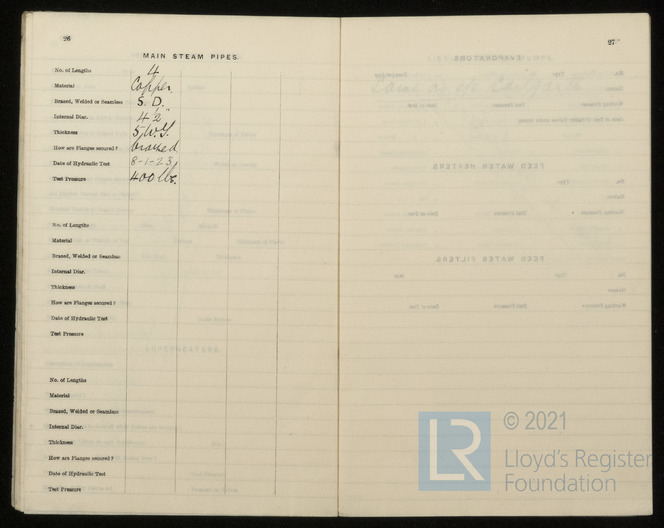 26
MAIN STEAM PIPES.
No. of Lengths 4
Material Copper
Brazed, Welded or Seamless S. D.
Internal Diar. 4½"
Thickness 5 W.G.
How are Flanges secured? brazed
Date of Hydraulic Test 8-1-23
Test Pressure 400 lbs.
No. of Lengths
Material
Brazed, Welded or Seamless
Internal Diar.
Thickness
How are Flanges secured?
Date of Hydraulic Test
Test Pressure
No. of Lengths
Material
Brazed, Welded or Seamless
Internal Diar.
Thickness
How are Flanges secured?
Date of Hydraulic Test
Test Pressure
27
LR
© 2021
Lloyd's Register
Foundation